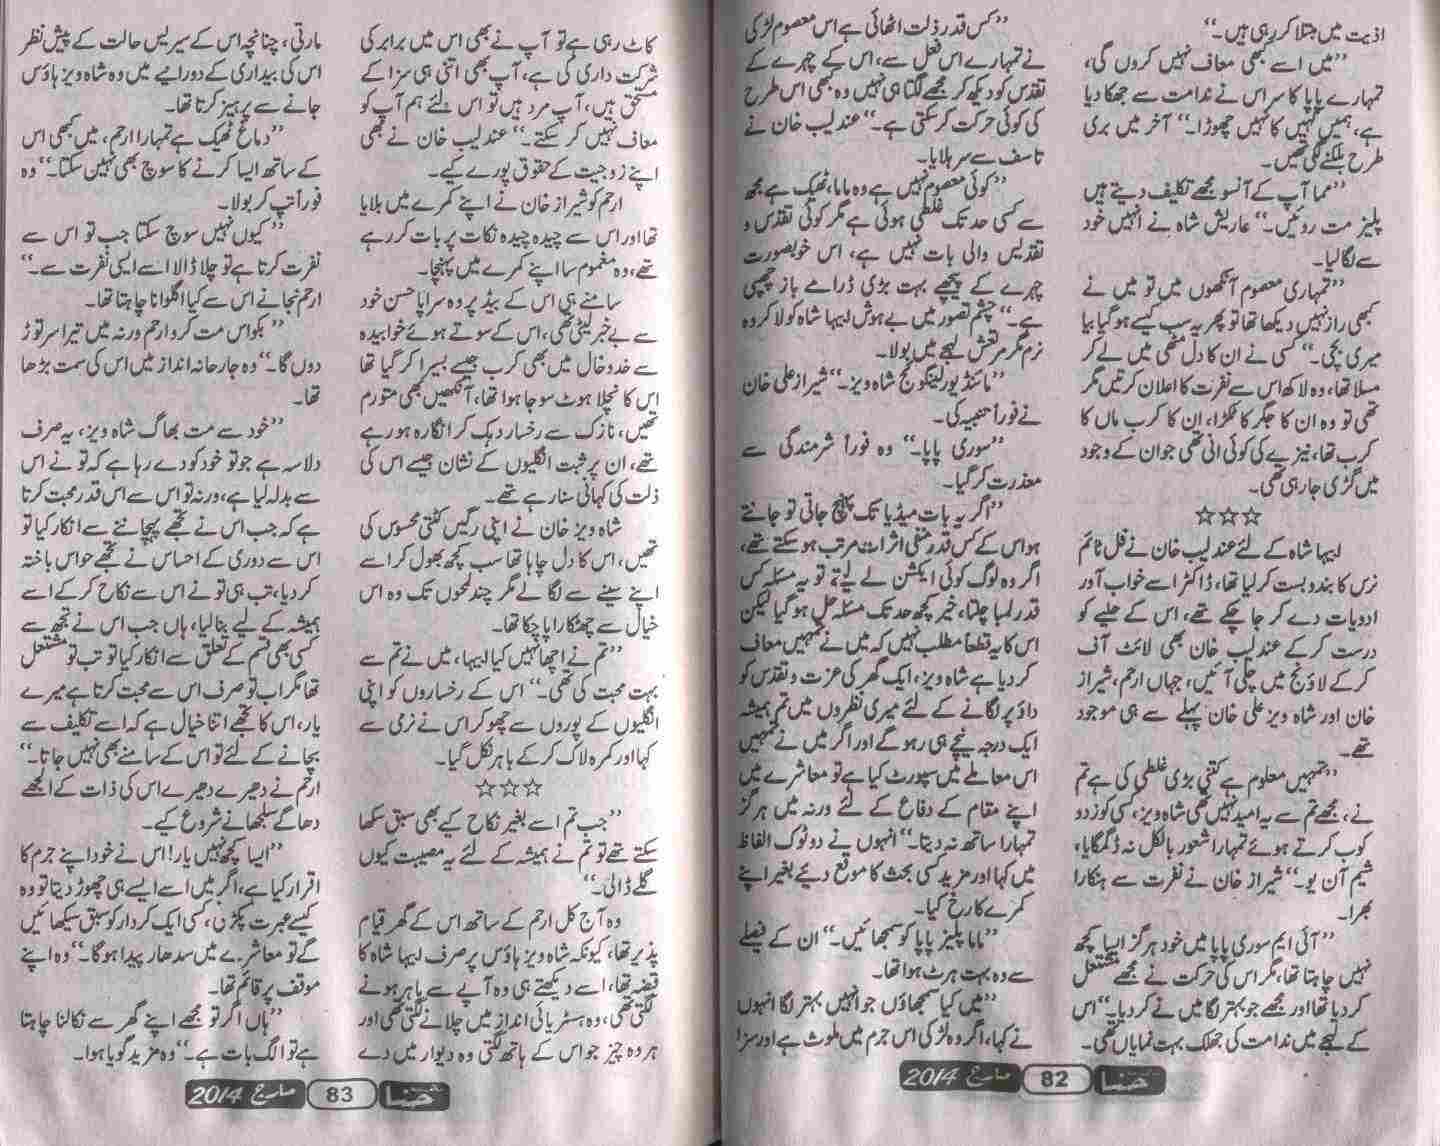 اذیت میں مبتلا کر رہی ہیں۔“
”میں اسے کبھی معاف نہیں کروں گی،
تمہارے پاپا کا سر اس نے ندامت سے جھکا دیا
ہے، ہمیں کہیں کا نہیں چھوڑا۔“ آخر میں بری
طرح بلکنے لگی تھیں۔
”مما آپ کے آنسو مجھے تکلیف دیتے ہیں
پلیز مت روئیں۔“ عاریش شاہ نے انہیں خود
سے لگا لیا۔
”تمہاری معصوم آنکھوں میں تو میں نے
کبھی راز نہیں دیکھا تھا تو پھر یہ سب کیسے ہو گیا بیا
میری بچی۔“ کسی نے ان کا دل مٹھی میں لے کر
مسلا تھا، وہ لاکھ اس سے نفرت کا اعلان کرتیں مگر
تھی تو وہ ان کا جگر کا ٹکڑا، ان کا کرب ماں کا
کرب تھا، نیزے کی کوئی انی تھی جو ان کے وجود
میں گڑی جا رہی تھی۔
☆☆☆
ایہا شاہ کے لئے عندلیب خان نے فل ٹائم
نرس کا بندوبست کر لیا تھا، ڈاکٹر اسے خواب آور
ادویات دے کر جا چکے تھے، اس کے حلیے کو
درست کر کے عندلیب خان بھی لائٹ آف
کر کے لاؤنج میں چلی آئیں، جہاں ارحم، شیراز
خان اور شاہ ویز علی خان پہلے سے ہی موجود
تھے۔
”تمہیں معلوم ہے کتنی بڑی غلطی کی ہے تم
نے، مجھے تم سے یہ امید نہیں تھی شاہ ویز، کسی کو زدو
کوب کرتے ہوئے تمہارا شعور بالکل نہ ڈگمگایا،
شیم آن یو۔“ شیراز خان نے نفرت سے ہنکارا
بھرا۔
”آئی ایم سوری پاپا میں خود ہرگز ایسا کچھ
نہیں چاہتا تھا، مگر اس کی حرکت نے مجھے مشتعل
کر دیا تھا اور مجھے جو بہتر لگا میں نے کر دیا۔“ اس
کے لہجے میں ندامت کی جھلک بہت نمایاں تھی۔
”کس قدر ذلت اٹھائی ہے اس معصوم لڑکی
نے تمہارے اس فعل سے، اس کے چہرے کے
تقدس کو دیکھ کر مجھے لگتا ہی نہیں وہ کبھی اس طرح
کی کوئی حرکت کر سکتی ہے۔“ عندلیب خان نے
تاسف سے سر ہلایا۔
”کوئی معصوم نہیں ہے وہ ماما، ٹھیک ہے مجھ
سے کسی حد تک غلطی ہوئی ہے مگر کوئی تقدس و
تقدیس والی بات نہیں ہے، اس خوبصورت
چہرے کے پیچھے بہت بڑی ڈرامے باز چھپی
ہے۔“ چشم تصور میں بے ہوش ایہا شاہ کو لا کر وہ
نرم مگر مرتعش لہجے میں بولا۔
”مائنڈ یور لینگوئج شاہ ویز۔“ شیراز علی خان
نے فوراً تنبیہ کی۔
”سوری پاپا۔“ وہ فوراً شرمندگی سے
معذرت کر گیا۔
”اگر یہ بات میڈیا تک پہنچ جاتی تو جانتے
ہو اس کے کس قدر منفی اثرات مرتب ہو سکتے تھے،
اگر وہ لوگ کوئی ایکشن لے لیتے تو یہ مسئلہ کس
قدر لمبا چلتا، خیر کچھ حد تک مسئلہ حل ہو گیا لیکن
اس کا یہ قطعاً مطلب نہیں کہ میں نے تمہیں معاف
کر دیا ہے شاہ ویز، ایک گھر کی عزت و تقدس کو
داؤ پر لگانے کے لئے میری نظروں میں تم ہمیشہ
ایک درجہ نیچے ہی رہو گے اور اگر میں نے تمہیں
اس معاملے میں سپورٹ کیا ہے تو معاشرے میں
اپنے مقام کے دفاع کے لئے ورنہ میں ہرگز
تمہارا ساتھ نہ دیتا۔“ انہوں نے دو ٹوک الفاظ
میں کہا اور مزید کسی بحث کا موقع دیئے بغیر اپنے
کمرے کا رخ کیا۔
”ماما پلیز پاپا کو سمجھائیں۔“ ان کے فیصلے
سے وہ بہت ہرٹ ہوا تھا۔
”میں کیا سمجھاؤں جو انہیں بہتر لگا انہوں
نے کہا، اگر وہ لڑکی اس جرم میں ملوث ہے اور سزا
حنا 82 مارچ 2014
کاٹ رہی ہے تو آپ نے بھی اس میں برابر کی
شرکت داری کی ہے، آپ بھی اتنی ہی سزا کے
مستحق ہیں، آپ مرد ہیں تو اس لئے ہم آپ کو
معاف نہیں کر سکتے۔“ عندلیب خان نے بھی
اپنے زوجیت کے حقوق پورے کیے۔
ارحم کو شیراز خان نے اپنے کمرے میں بلایا
تھا اور اس سے چیدہ چیدہ نکات پر بات کر رہے
تھے، وہ مغموم سا اپنے کمرے میں پہنچا۔
سامنے ہی اس کے بیڈ پر وہ سراپا حسن خود
سے بے خبر لیٹی تھی، اس کے سوتے ہوئے خوابیدہ
سے خدوخال میں بھی کرب جیسے بسیرا کر گیا تھا
اس کا نچلا ہونٹ سوجا ہوا تھا، آنکھیں بھی متورم
تھیں، نازک سے رخسار دہک کر انگارہ ہو رہے
تھے، ان پر ثبت انگلیوں کے نشان جیسے اس کی
ذلت کی کہانی سنا رہے تھے۔
شاہ ویز خان نے اپنی رگیں کٹتی محسوس کی
تھیں، اس کا دل چاہا تھا سب کچھ بھول کر اسے
اپنے سینے سے لگا لے مگر چند لمحوں تک وہ اس
خیال سے چھٹکارا پا چکا تھا۔
”تم نے اچھا نہیں کیا ایہا، میں نے تم سے
بہت محبت کی تھی۔“ اس کے رخساروں کو اپنی
انگلیوں کے پوروں سے چھو کر اس نے نرمی سے
کہا اور کمرہ لاک کر کے باہر نکل گیا۔
☆☆☆
”جب تم اسے بغیر نکاح کیے بھی سبق سکھا
سکتے تھے تو تم نے ہمیشہ کے لئے یہ مصیبت کیوں
گلے ڈالی۔“
وہ آج کل ارحم کے ساتھ اس کے گھر قیام
پذیر تھا، کیونکہ شاہ ویز ہاؤس پر صرف ایہا شاہ کا
قبضہ تھا، اسے دیکھتے ہی وہ آپے سے باہر ہونے
لگتی تھی، وہ ہسٹریائی انداز میں چلانے لگتی تھی اور
ہر وہ چیز جو اس کے ہاتھ لگتی وہ دیوار میں دے
مارتی، چنانچہ اس کے سیریس حالت کے پیش نظر
اس کی بیداری کے دورانیے میں وہ شاہ ویز ہاؤس
جانے سے پرہیز کرتا تھا۔
”دماغ ٹھیک ہے تمہارا ارحم، میں کبھی اس
کے ساتھ ایسا کرنے کا سوچ بھی نہیں سکتا۔“ وہ
فوراً تپ کر بولا۔
”کیوں نہیں سوچ سکتا جب تو اس سے
نفرت کرتا ہے تو چلا ڈالا اسے ایسی نفرت سے۔“
ارحم نجانے اس سے کیا اگلوانا چاہتا تھا۔
”بکواس مت کرو ارحم ورنہ میں تیرا سر توڑ
دوں گا۔“ وہ جارحانہ انداز میں اس کی سمت بڑھا
تھا۔
”خود سے مت بھاگ شاہ ویز، یہ صرف
دلاسہ ہے جو تو خود کو دے رہا ہے کہ تو نے اس
سے بدلہ لیا ہے، ورنہ تو اس سے اس قدر محبت کرتا
ہے کہ جب اس نے تجھے پہچاننے سے انکار کیا تو
اس سے دوری کے احساس نے تجھے حواس باختہ
کر دیا، تب ہی تو نے اس سے نکاح کر کے اسے
ہمیشہ کے لیے پنا لیا، ہاں جب اس نے تجھ سے
کسی بھی قسم کے تعلق سے انکار کیا تو تب تو مشتعل
تھا مگر اب تو صرف اس سے محبت کرتا ہے میرے
یار، اس کا تجھے اتنا خیال ہے کہ اسے تکلیف سے
بچانے کے لئے تو اس کے سامنے بھی نہیں جاتا۔“
ارحم نے دھیرے دھیرے اس کی ذات کے الجھے
دھاگے سلجھانے شروع کیے۔
”ایسا کچھ نہیں یار! اس نے خود اپنے جرم کا
اقرار کیا ہے، اگر میں اسے ایسے ہی چھوڑ دیتا تو وہ
کیسے عبرت پکڑتی، کسی ایک کردار کو سبق سیکھائیں
گے تو معاشرے میں سدھار پیدا ہو گا۔“ وہ اپنے
موقف پر قائم تھا۔
”ہاں اگر تو مجھے اپنے گھر سے نکالنا چاہتا
ہے تو الگ بات ہے۔“ وہ مزید گویا ہوا۔
حنا 83 مارچ 2014